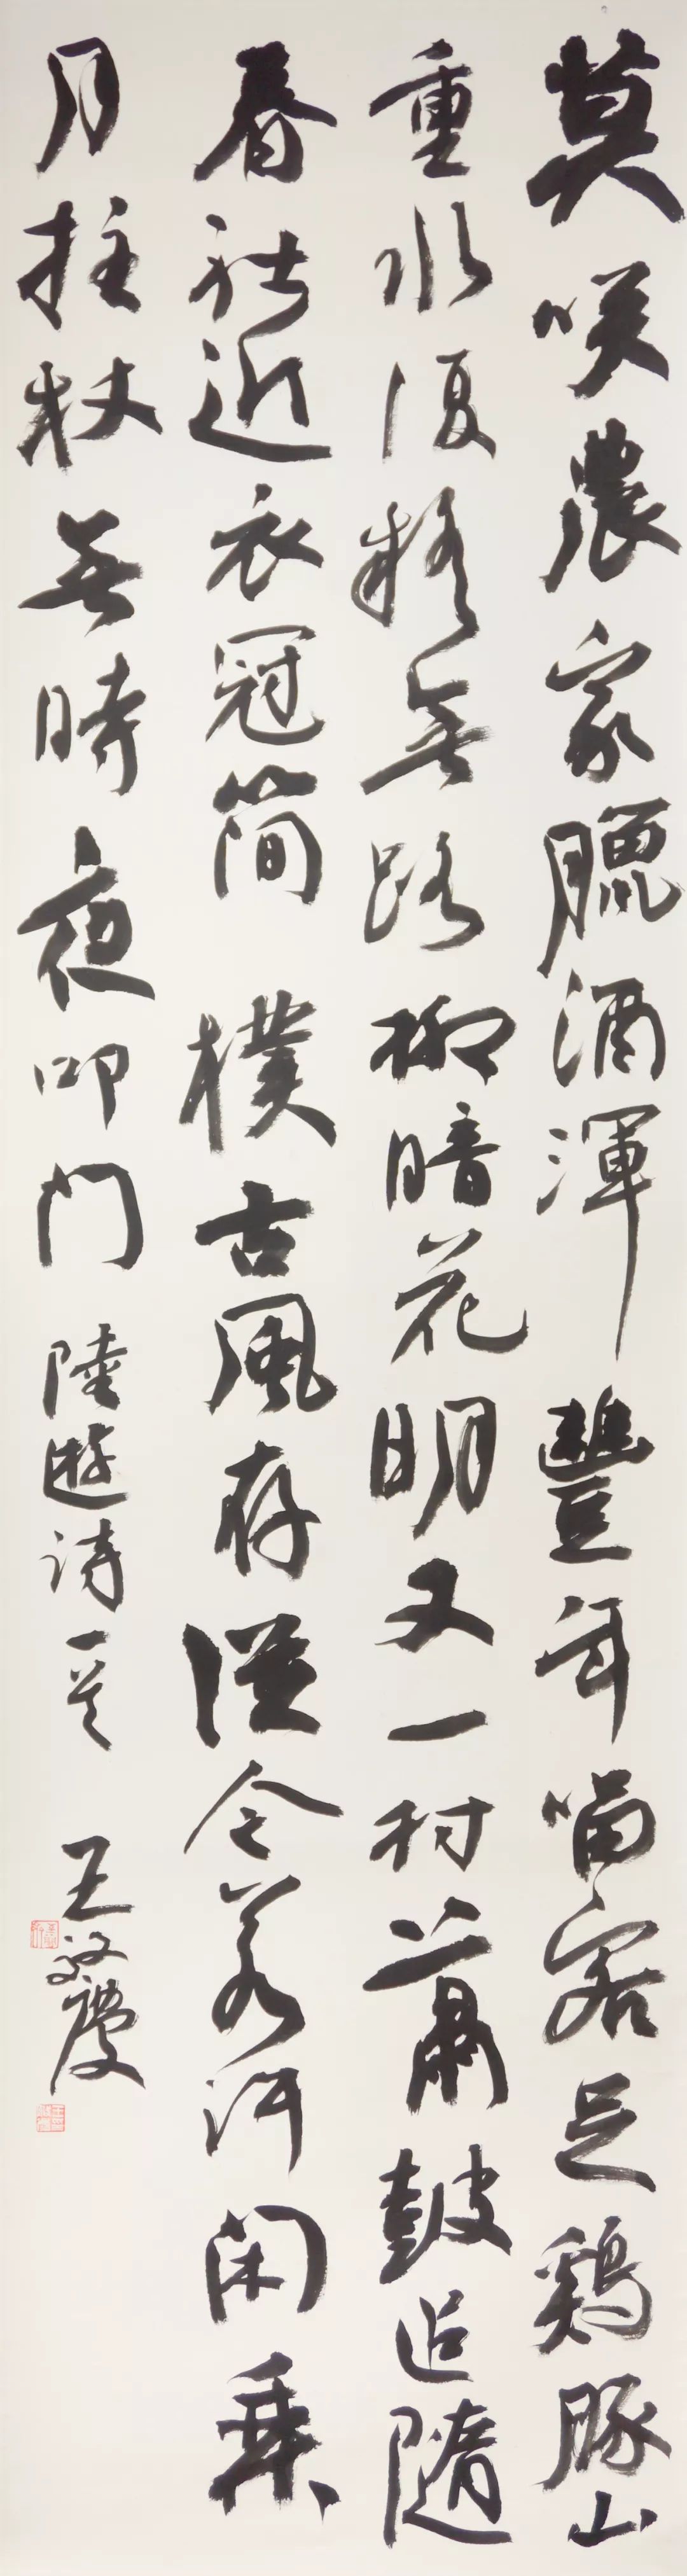 莫咲農家臘酒渾豐年留客足鷄豚山
重水復疑無路柳暗花明又一村簫鼓追隨
春社近衣冠簡樸古風存從今若許閑乘
月拄杖無時夜叩门陸遊詩一首王
慶